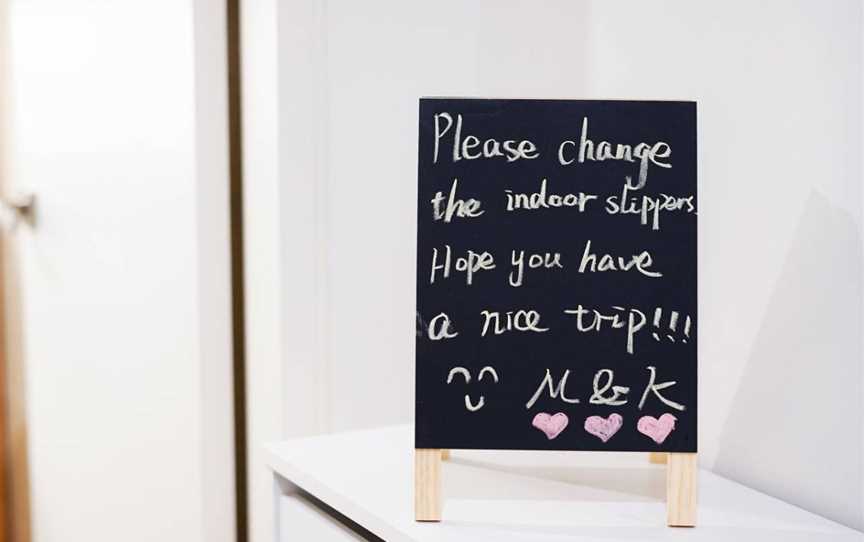 Please change
the indoor slippers.
Hope you have
a nice trip!!!
M & K